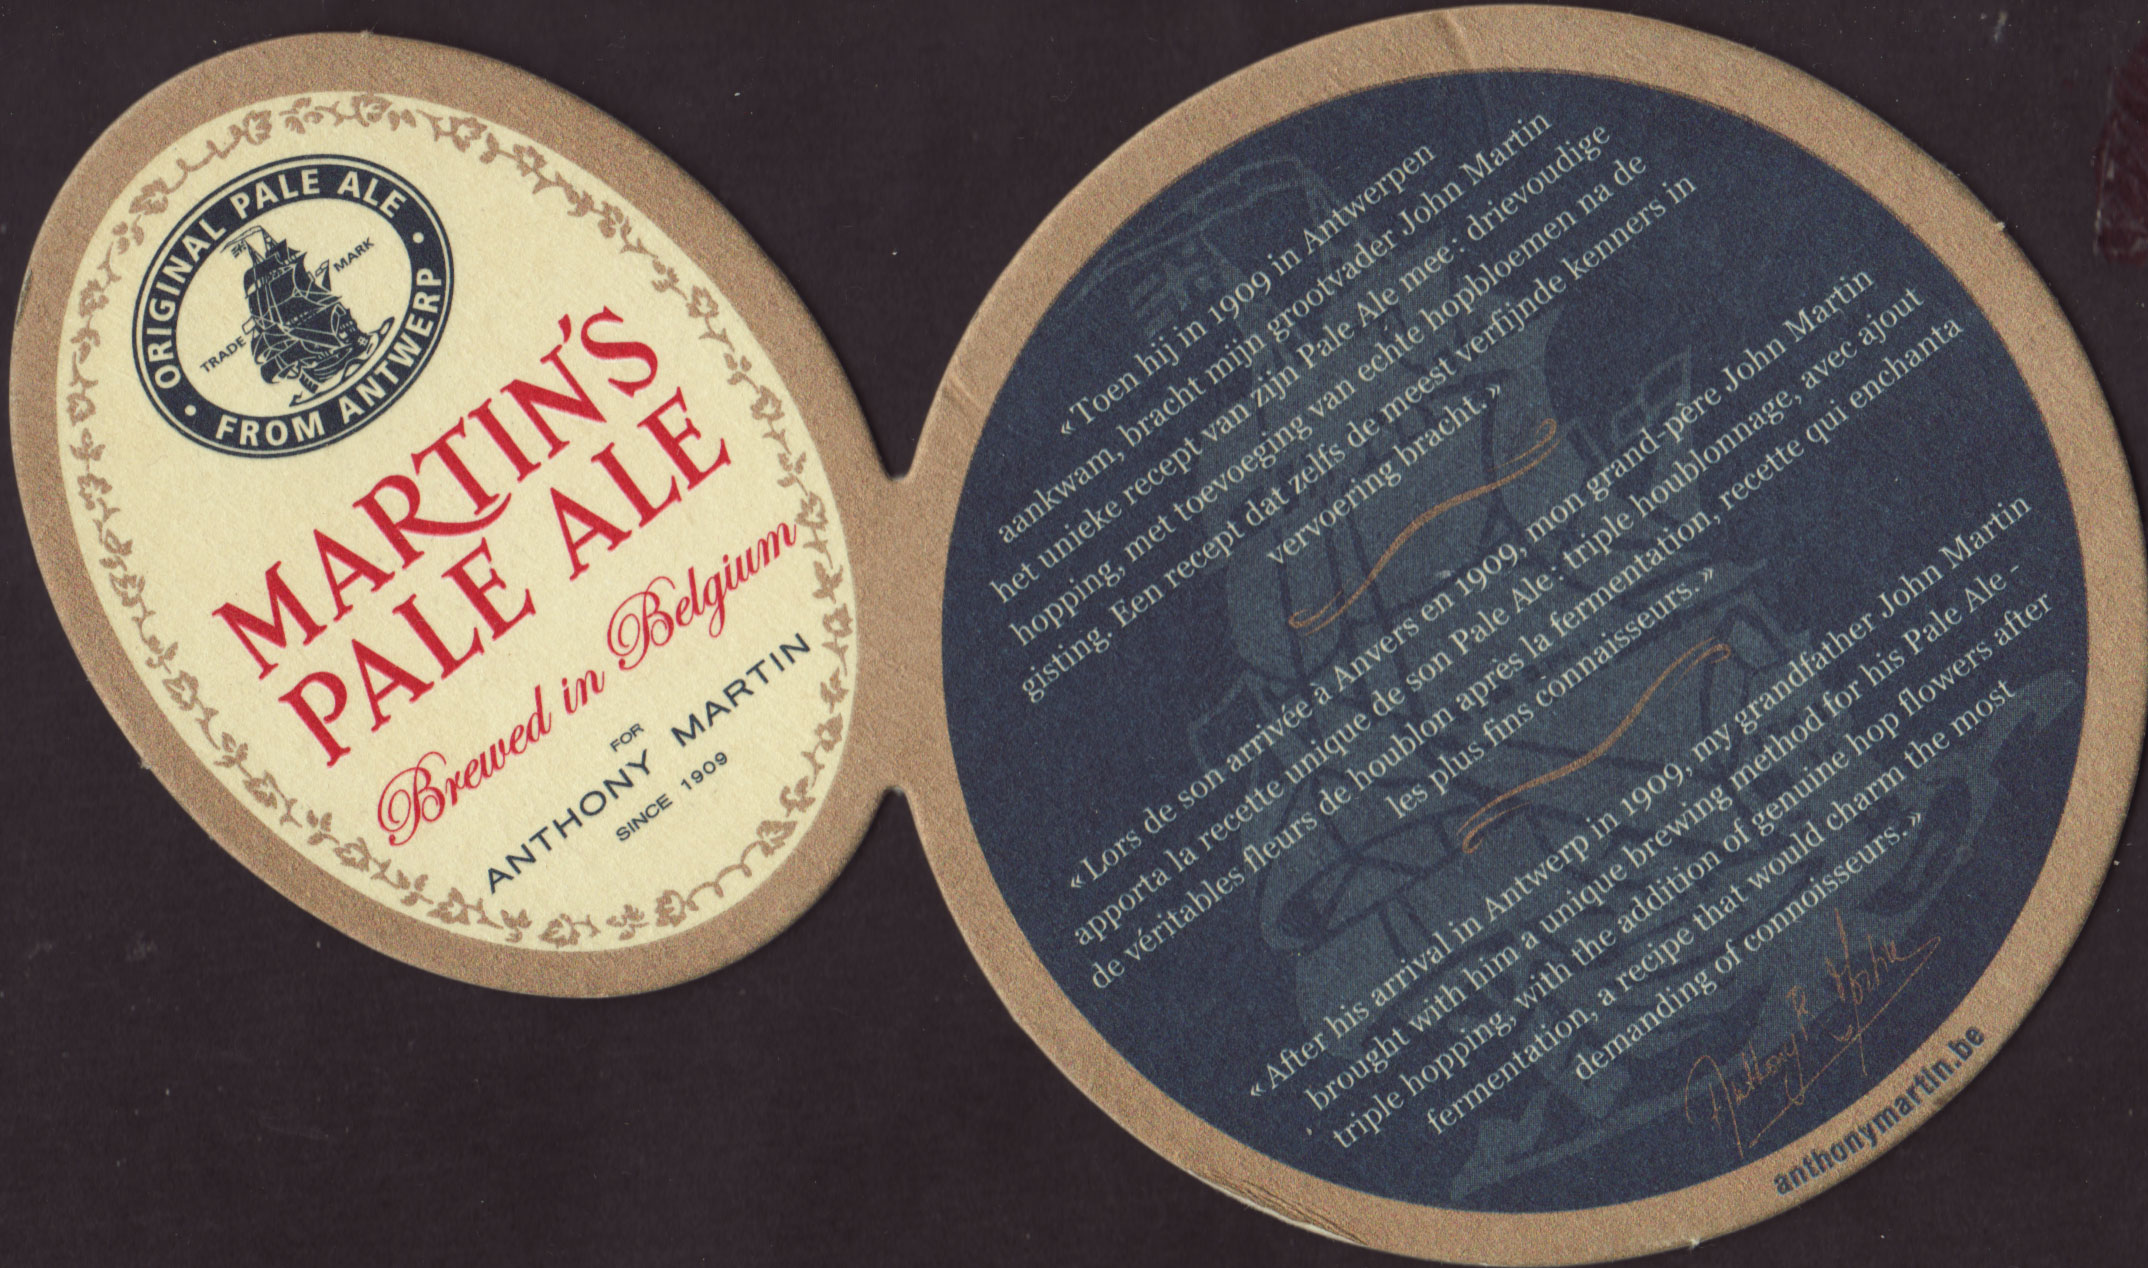 ORIGINAL PALE ALE
TRADE MARK
FROM ANTWERP
MARTIN'S
PALE ALE
Brewed in Belgium
FOR
ANTHONY MARTIN
SINCE 1909
« Toen hij in 1909 in Antwerpen
aankwam, bracht mijn grootvader John Martin
het unieke recept van zijn Pale Ale mee: drievoudige
hopping, met toevoeging van echte hopbloemen na de
gisting. Een recept dat zelfs de meest verfijnde kenners in
vervoering bracht. »
« Lors de son arrivée à Anvers en 1909, mon grand-père John Martin
apporta la recette unique de son Pale Ale: triple houblonnage, avec ajout
de véritables fleurs de houblon après la fermentation, recette qui enchanta
les plus fins connaisseurs. »
« After his arrival in Antwerp in 1909, my grandfather John Martin
brought with him a unique brewing method for his Pale Ale -
triple hopping, with the addition of genuine hop flowers after
fermentation, a recipe that would charm the most
demanding of connoisseurs. »
anthonymartin.be